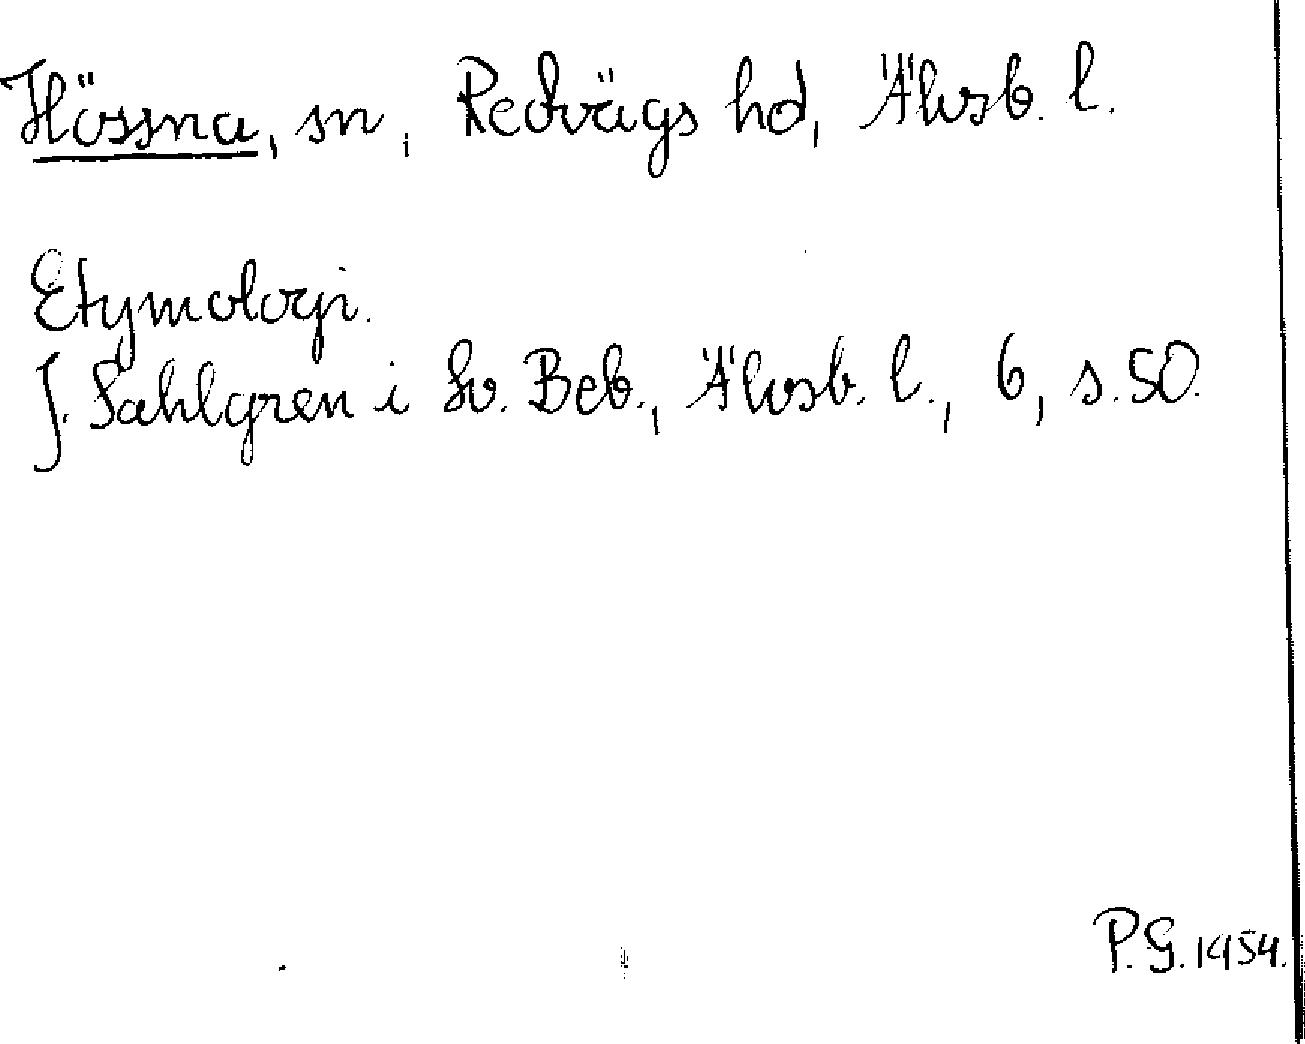 Hössna, sn, Redvägs hd, Älvsb. l.
Etymologi.
J. Sahlgren i Sv. Beb., Älvsb. l., 6, s. 50.
P.G. 1954.